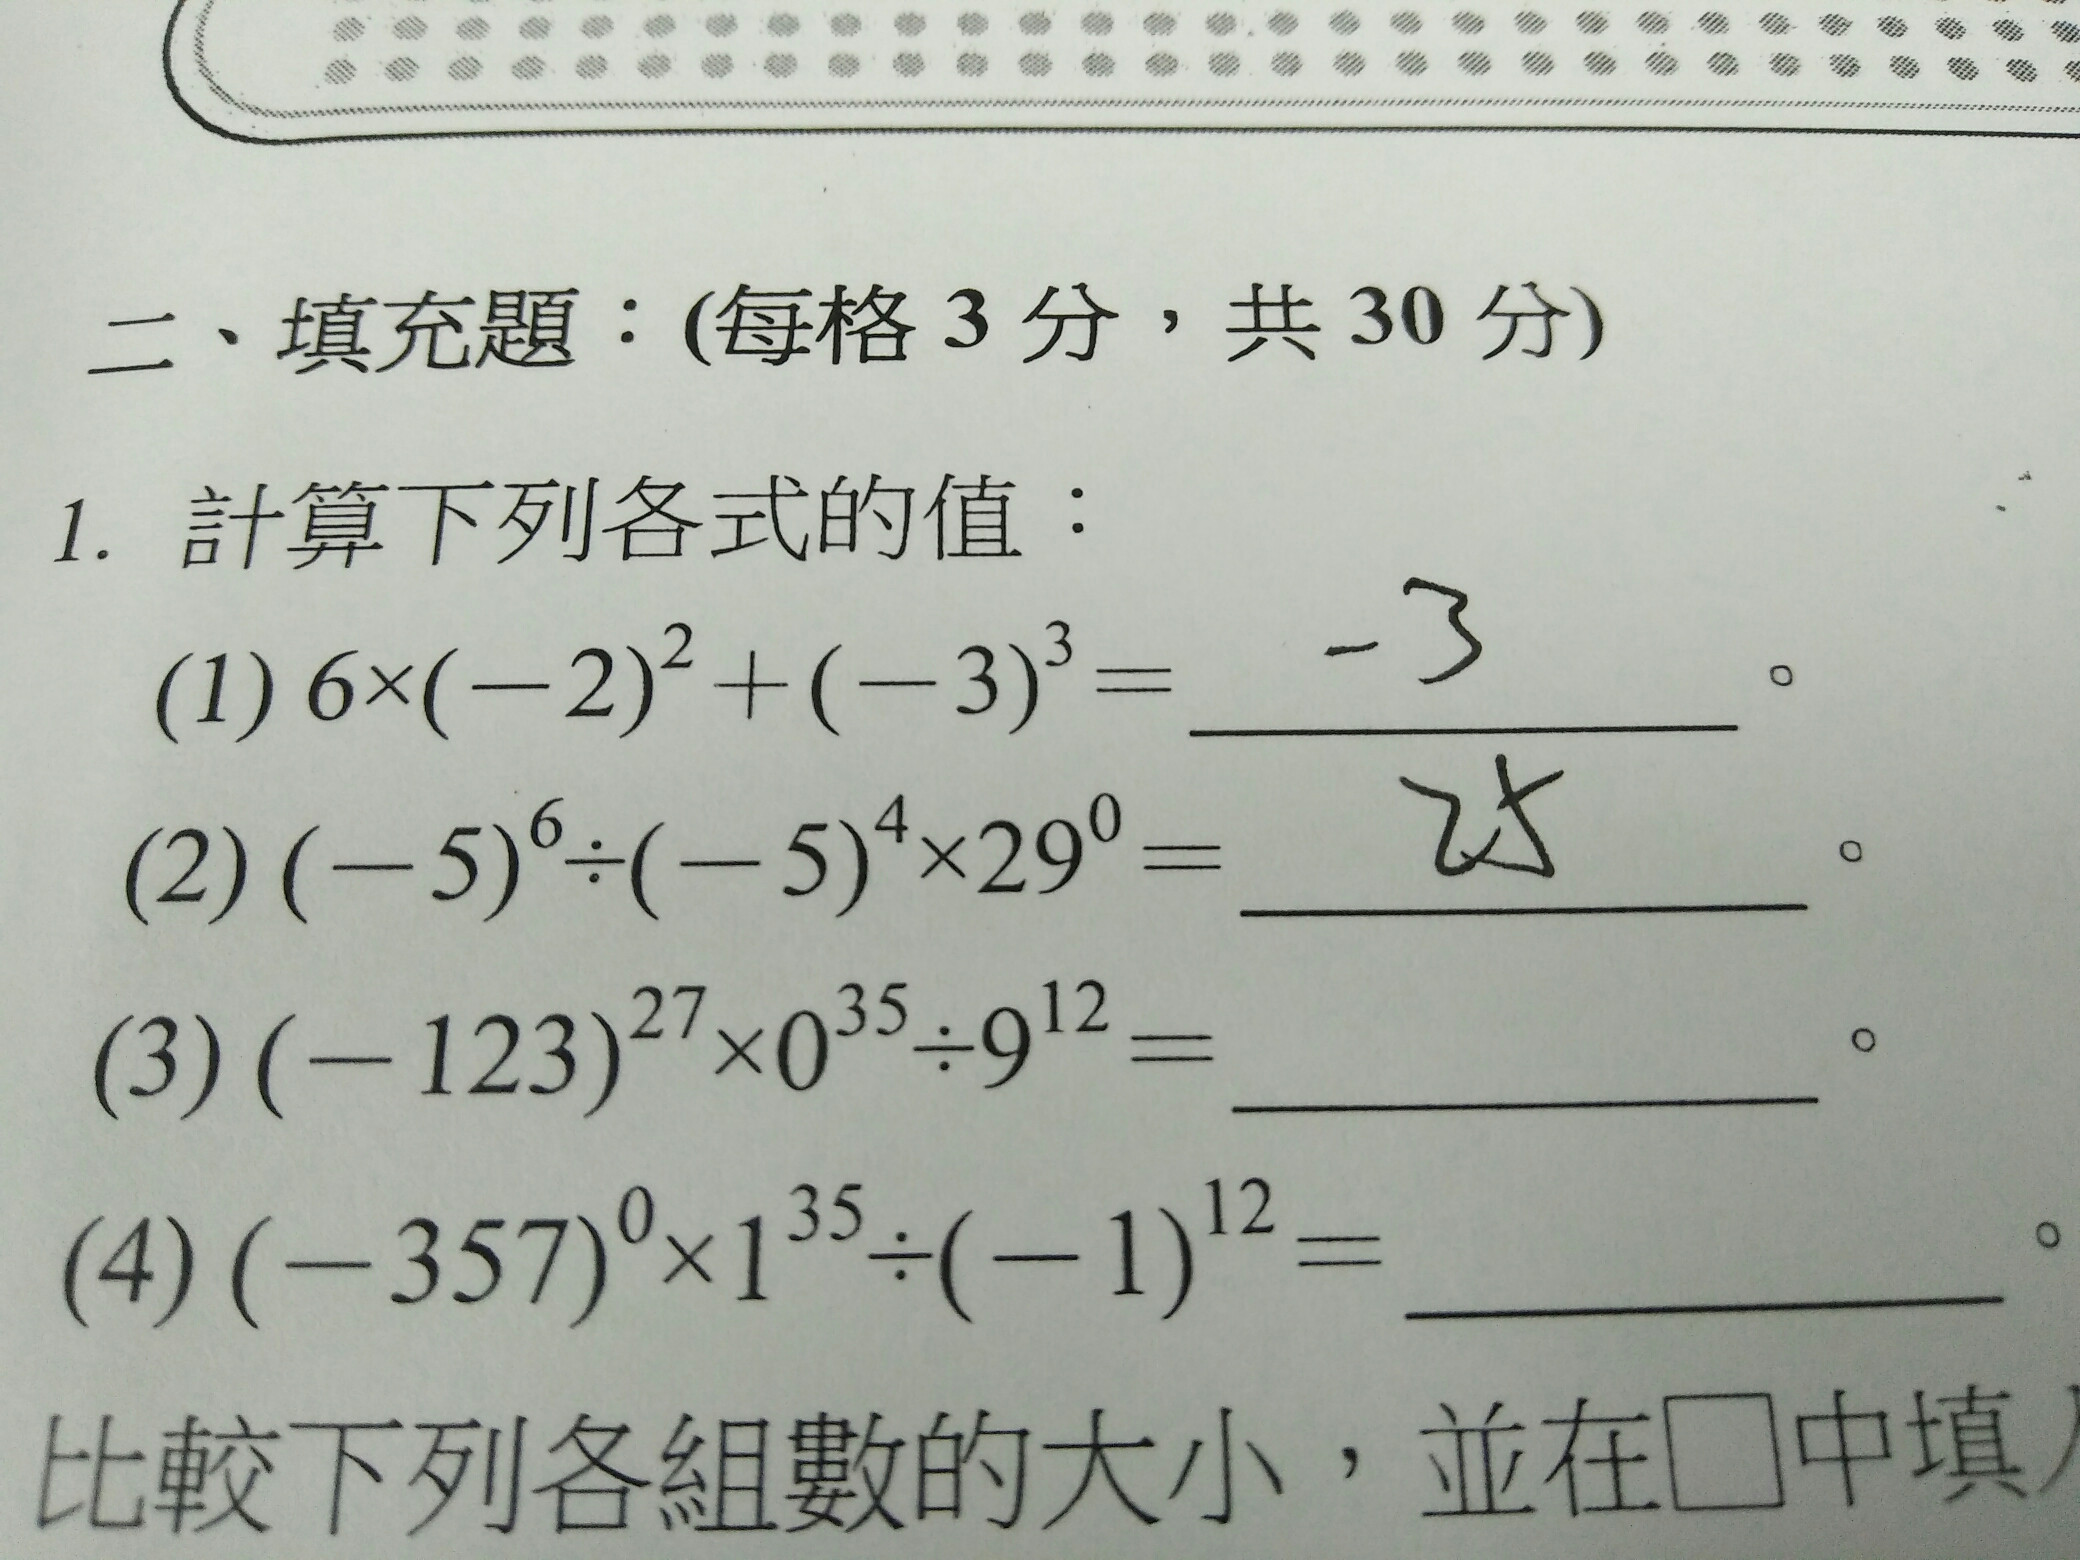 二、填充題：(每格 3 分，共 30 分)
1. 計算下列各式的值：
(1) 6×(－2)²＋(－3)³＝ -3 。
(2) (－5)⁶÷(－5)⁴×29⁰＝ 25 。
(3) (－123)²⁷×0³⁵÷9¹²＝ 。
(4) (－357)⁰×1³⁵÷(－1)¹²＝ 。
比較下列各組數的大小，並在□中填